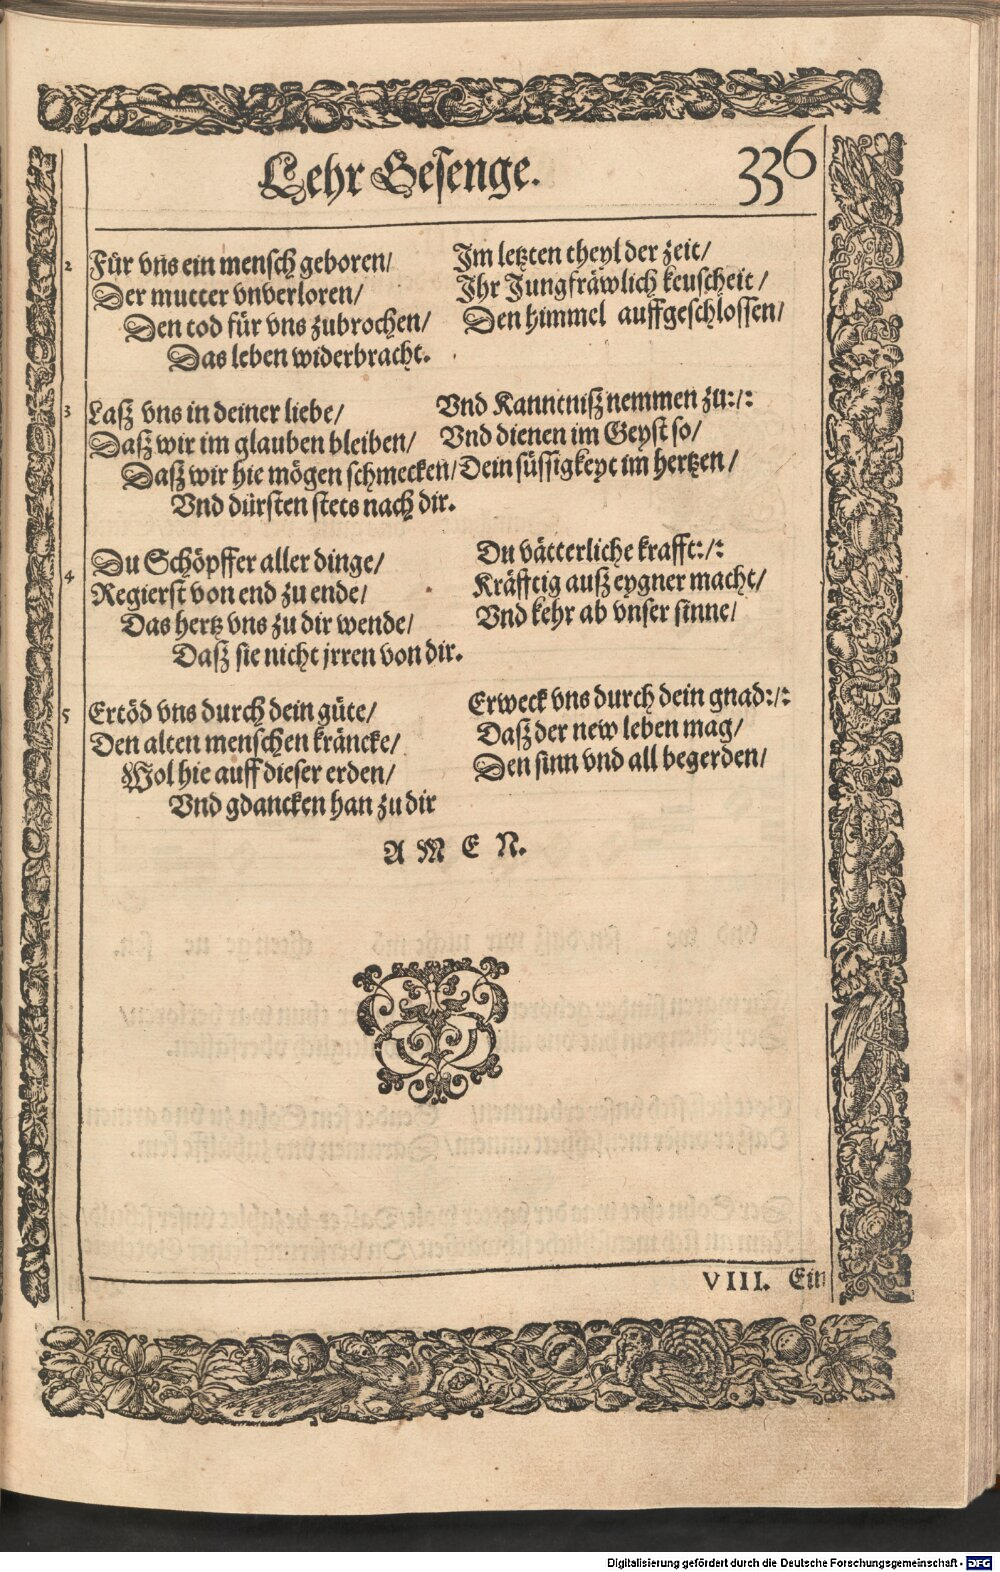 Lehr Gesenge. 336
2 Für vns ein mensch geboren/ Im letzten theyl der zeit/
Der mutter vnverloren/ Ihr Jungfräwlich keuscheit/
Den tod für vns zubrochen/ Den himmel auffgeschlossen/
Das leben widerbracht.
3 Laß vns in deiner liebe/ Vnd Kanntniß nemmen zu:/:
Daß wir im glauben bleiben/ Vnd dienen im Geyst so/
Daß wir hie mögen schmecken/ Dein süssigkeyt im hertzen/
Vnd dürsten stets nach dir.
4 Du Schöpffer aller dinge/ Du vätterliche krafft:/:
Regierst von end zu ende/ Kräfftig auß eygner macht/
Das hertz vns zu dir wende/ Vnd kehr ab vnser sinne/
Daß sie nicht jrren von dir.
5 Ertöd vns durch dein güte/ Erweck vns durch dein gnad:/:
Den alten menschen kräncke/ Daß der new leben mag/
Wol hie auff dieser erden/ Den sinn vnd all begerden/
Vnd gdancken han zu dir
A M E N.
VIII. Ein
Digitalisierung gefördert durch die Deutsche Forschungsgemeinschaft - DFG